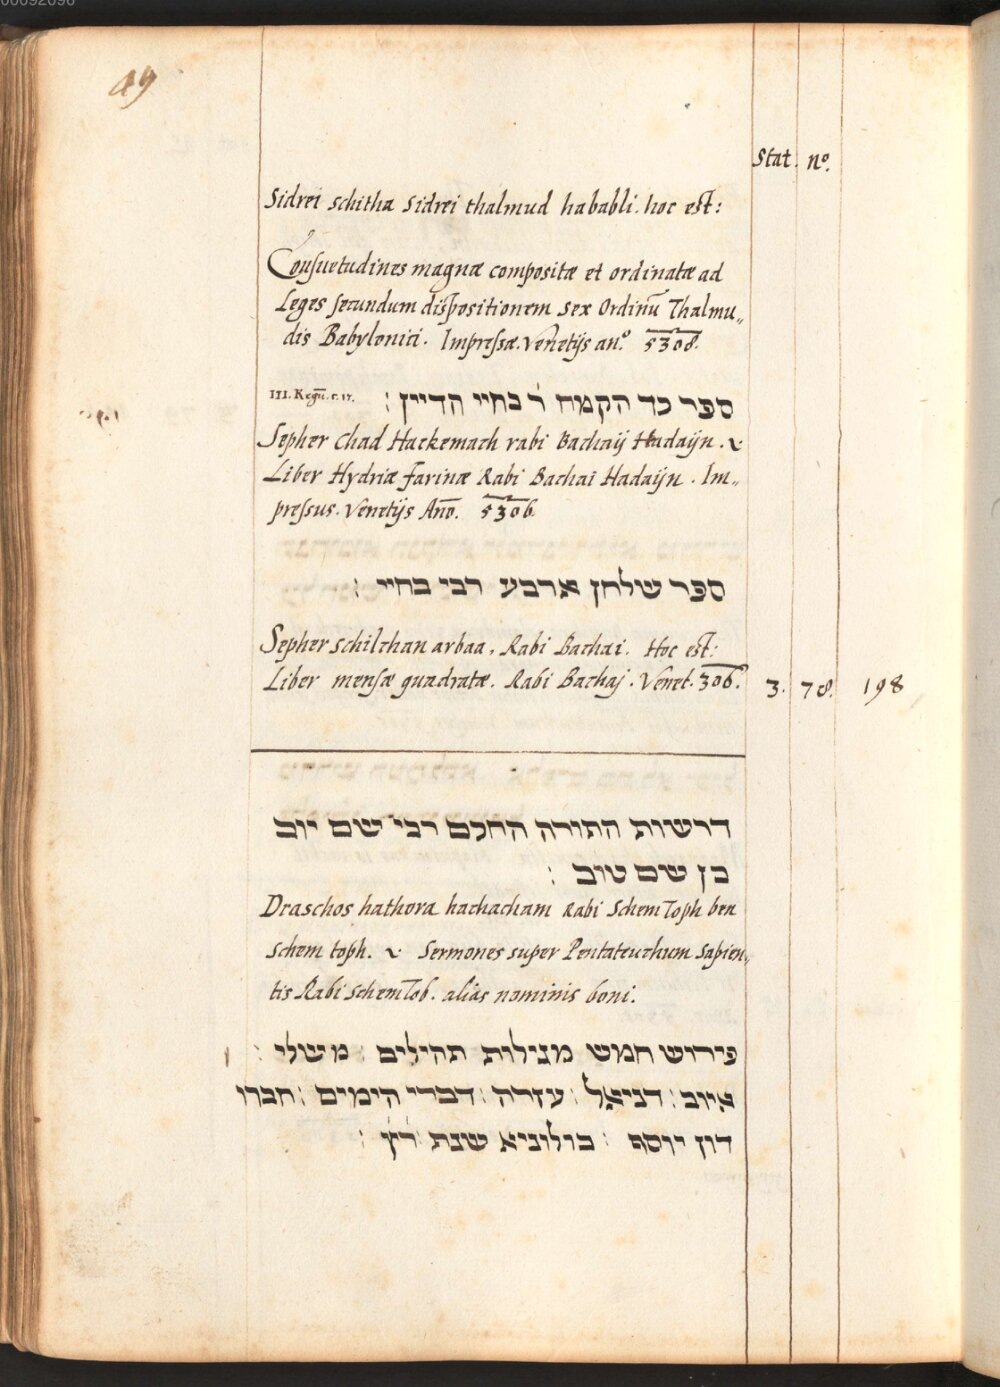 49
Stat. nº.
Sidrei schitha Sidrei thalmud hababli. hoc est:
Consuetudines magnæ compositæ et ordinatæ ad
Leges secundum dispositionem sex Ordinũ Thalmu„
dis Babylonici. Impressæ. Venetijs an.º 5308.
ספר כד הקמח ר׳ בחיי הדיין :
III. Regũ. c. 17.
Sepher Chad Hackemach rabi Bachaij Hadaijn.
Liber Hydriæ farinæ Rabi Bachai Hadaijn. Im„
pressus. Venetijs Año. 5306.
ספר שלחן ארבע רבי בחיי :
Sepher schilchan arbaa, Rabi Bachai. Hoc est:
Liber mensæ quadratæ. Rabi Bachaj. Venet. 306. 3. 78. 198
דרשות התורה החכם רבי שם יוב
בן שם טוב :
Draschos hathora hachacham Rabi Schem Toph ben
Schem toph. Sermones super Pentateuchum Sapien„
tis Rabi Schem Tob. alias nominis boni.
פירוש חמש מגילות תהילים : משלי :
איוב : דניאל : עזרה : דברי הימים : חברו
דון יוסף : בולוניא שנת רץ :